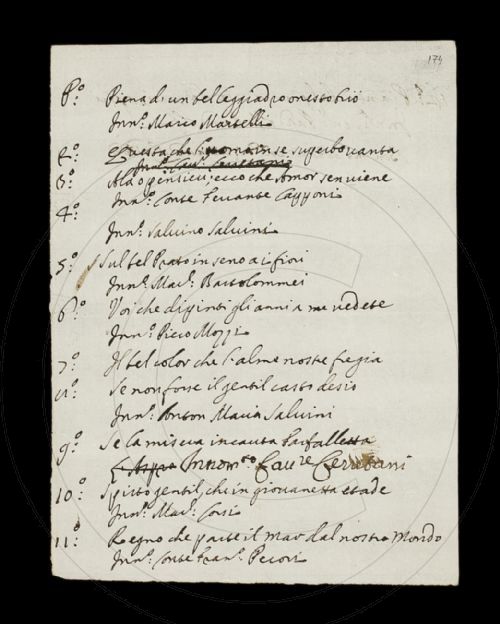 174
P.º Piena di un bel leggiadro onesto brio
Inn.º Marco Martelli
2.º Questa che superbo vanta
3.º Ala o pensieri, ecco che Amor sen viene
Inn.º Conte Ferrante Capponi
4.º
Inn.º Salvino Salvini
5.º Sul bel Prato in seno a i fiori
Inn.º Mar. Bartolommei
6.º Voi che dipinti gli anni a me vedete
Inn.º Piero Mozzi
7.º Il bel color che l'alme nostre fregia
8.º Se non fosse il gentil casto desio
Inn.º Anton Maria Salvini
9.º Se la misera incauta farfalletta
Innom.to Cau.re Cerretani
10.º Spirto gentil, ch'in giovanetta etade
Inn.º Mar. Corsi
11.º Regno che parte il mar dal nostro Mondo
Inn.º Conte Fran. Pecori